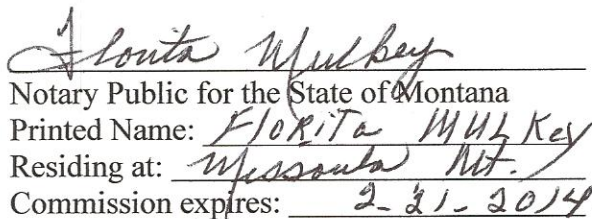 Florita Mulkey
Notary Public for the State of Montana
Printed Name: FloRiTa MULKey
Residing at: Missoula Mt.
Commission expires: 2-21-2014